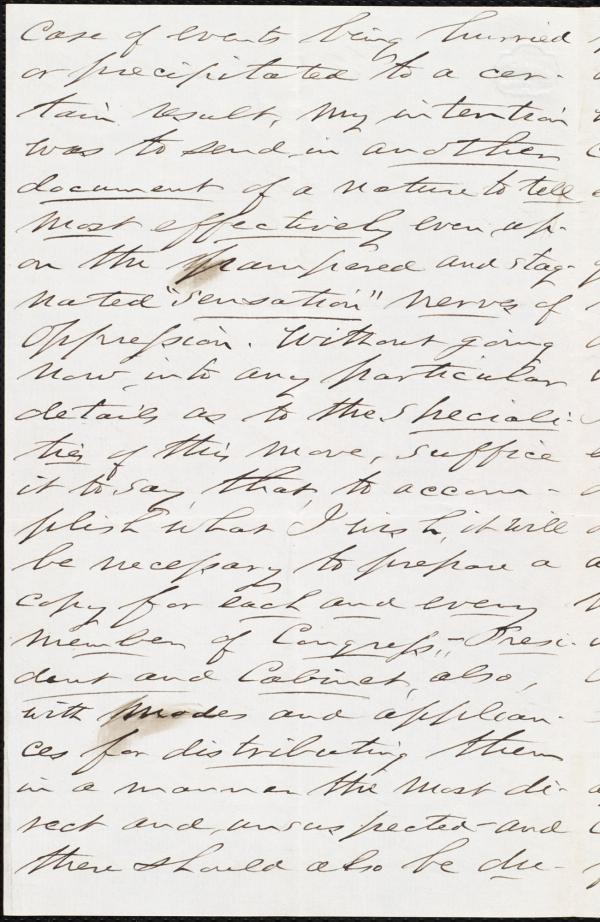 case of events being hurried
or precipitated to a cer-
tain result, my intention
was to send in another
document of a nature to tell
most effectively even up-
on the pampered and stag-
nated "sensation" nerves of
oppression. Without going
now, into any particular
details as to the speciali-
ties of this move, suffice
it to say, that, to accom-
plish what I wish, it will
be necessary to prepare a
copy for each and every
member of Congress,- Presi-
dent and Cabinet, also,
with modes and applian-
ces for distributing them
in a manner the most di-
rect and unsuspected - and
there should also be du-